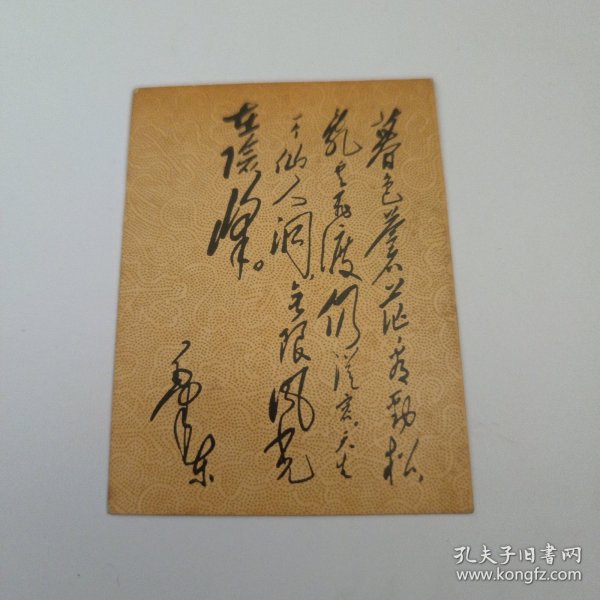 暮色苍茫看劲松，
乱云飞渡仍从容。天生
一个仙人洞，无限风光
在险峰。
毛泽东
孔夫子旧书网
www.kongfz.com